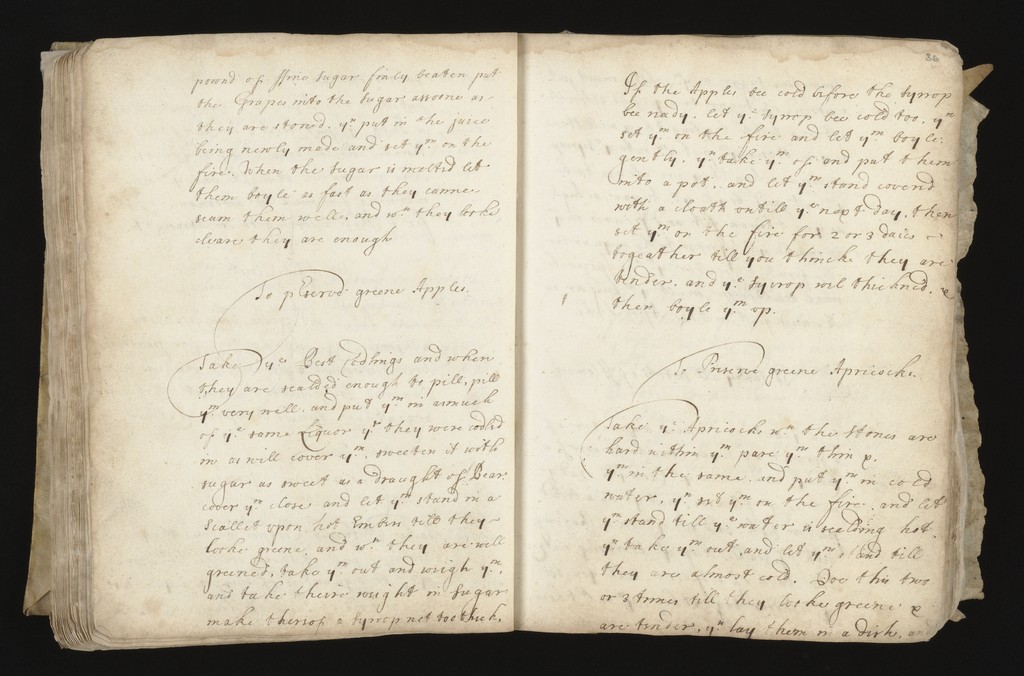 pound of ffine sugar finly beaten put
the Grapes into the sugar assone as
they are stoned. yn put in the juice
being newly made and set ym on the
fire. When the sugar is melted let
them boyle as fast as they canne
scum them welle, and wn they looke
cleare they are enough
To pserve greene Apples.
Take ye Best Codlings and when
they are scalded enough to pill, pill
ym very well. and put ym in asmuch
of ye same Liquor yt they were codled
in as will cover ym, sweeten it with
sugar as sweet as a draught of Bear
cover ym close and let ym stand in a
Scallet upon hot Embers till they
looke greene and wn they are well
greened, take ym out and weigh ym,
and take theire weight in sugar
make thereof a syrop not too thick,
36
If the Apples bee cold before the syrrop
bee ready, let ye syrop bee cold too, yn
set ym on the fire and let ym boyle
gently, yn take ym of and put them
into a pot, and let ym stand coverd
with a cloath ontill ye next day, then
set ym on the fire for 2 or 3 daies
togeather till you thincke they are
tender. and ye syrrop wel thickned. &
then boyle ym up.
To Preserve greene Apricocks.
Take ye Apricocks wn the stones are
hard within ym pare ym thin &
ym in the same. and put ym in cold
water, yn set ym on the fire, and let
ym stand till ye water is scalding hot.
yn take ym out and let ym stand till
they are almost cold. Doe this two
or 3 times till they looke greene &
are tender, yn lay them in a dish, and